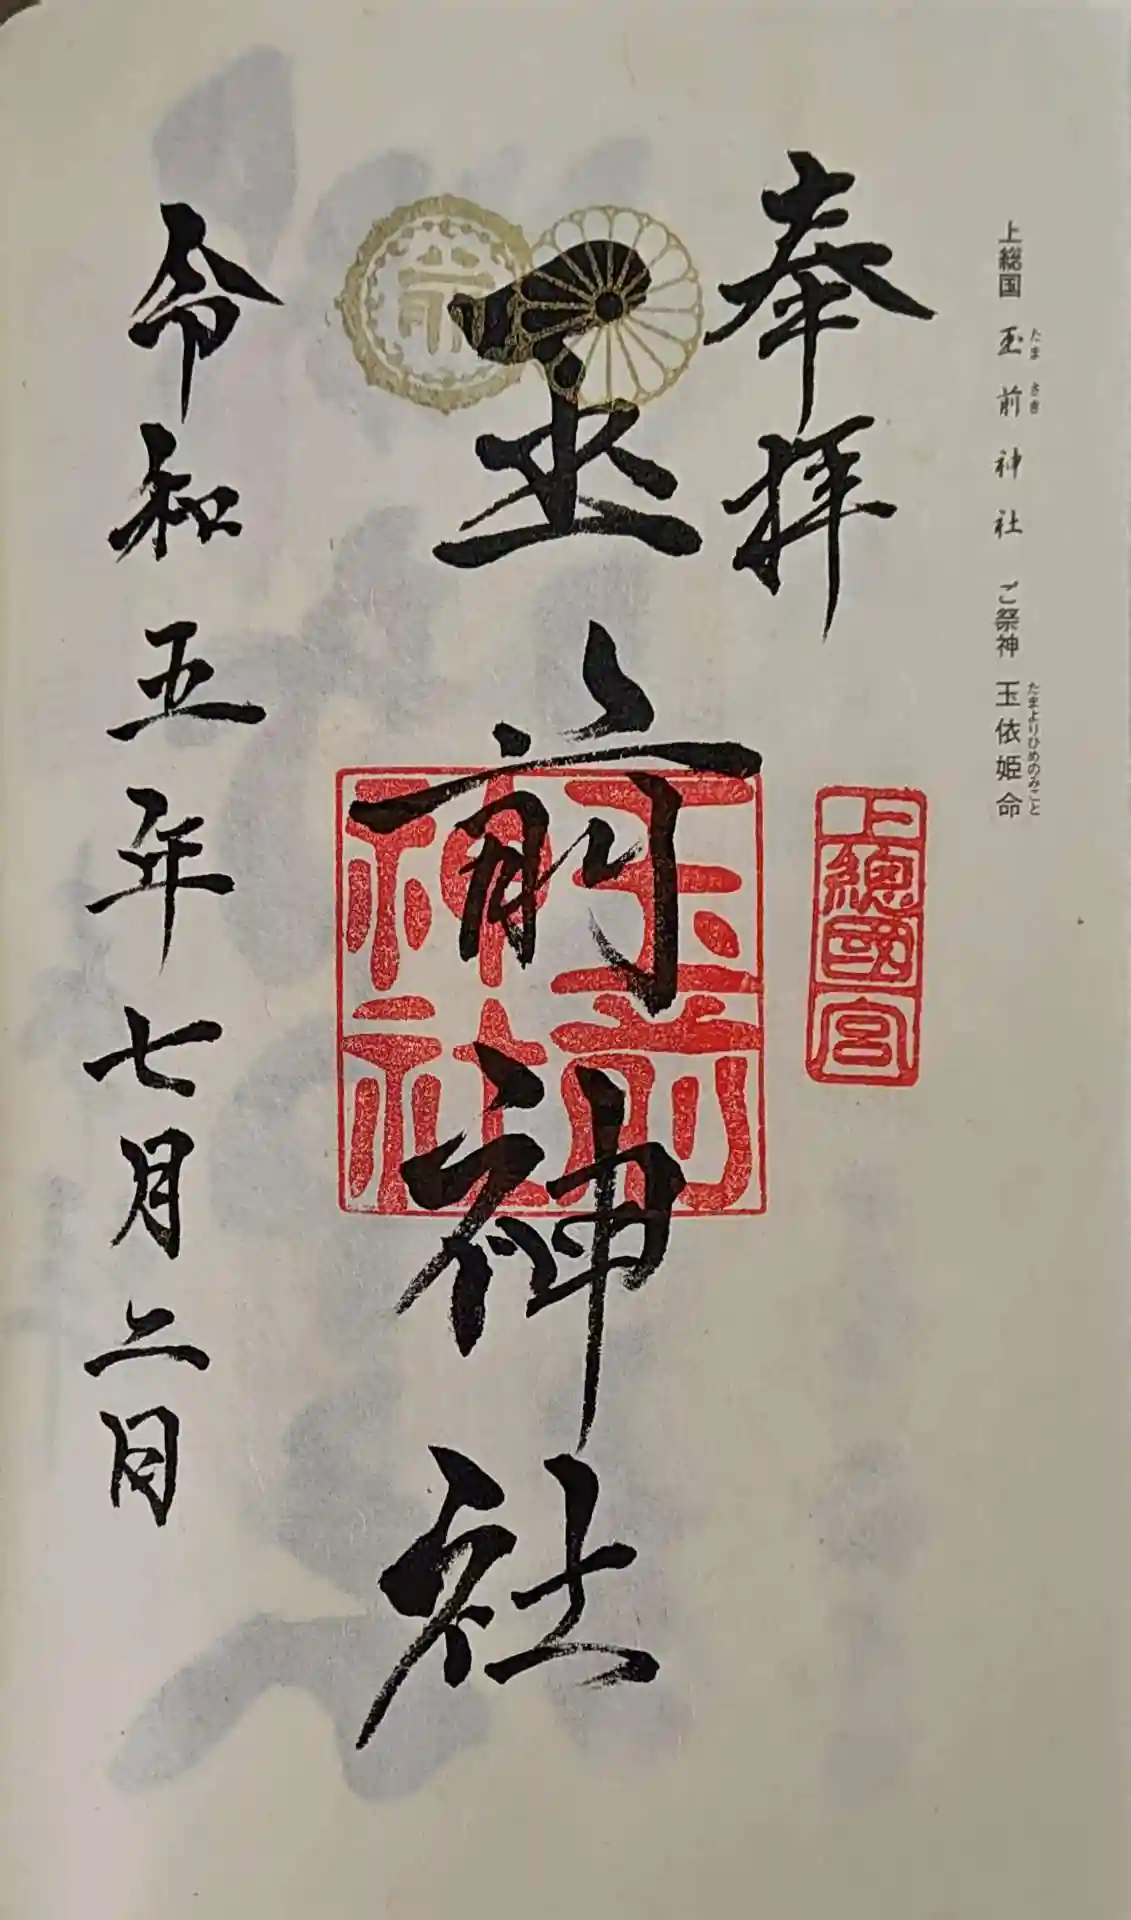 上総国 玉前神社 ご祭神 玉依姫命
たま さき たまよりひめのみこと
奉拝
上總國一宮
玉前神社
玉前神社
令和五年七月二日